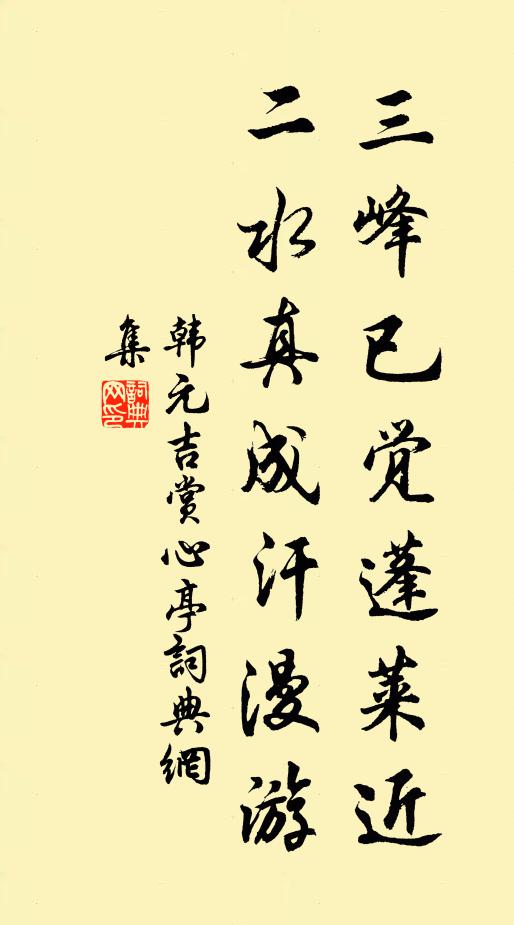 三峰已觉蓬莱近
二水真成汗漫游
韩元吉赏心亭詞典網
集
詞典
网印